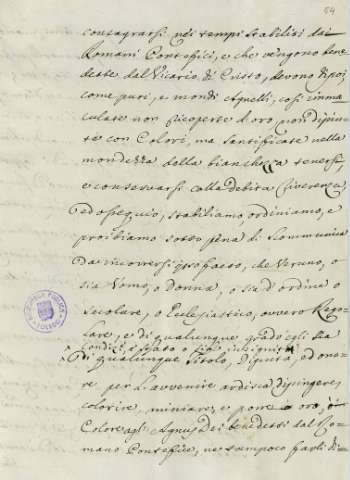 54
consagrarsi nei tempi stabiliti dai
Romani Pontefici, e che vengono bene
dette dal Vicario di Cristo, devono dipoi
come puri, e mondi Agnelli, così imma
culate non ricoperte di oro, non dipin
te con Colori, ma santificate nella
mondezza della bianchezza tenersi,
e conservarsi colla debita riverenza,
ed ossequio, stabiliamo ordiniamo, e
proibiamo sotto pena di Scommunica
da incorrersi ipso facto, che Veruno, o
sia Uomo, o donna, o sia d'ordine o
Secolare, o Eclesiastico, ovvero Rego
lare, e di qualunque grado egli sia
condiz.e, e stato o sia insignito
Di qualunque Titolo, Dignità, ed ono
re per l'avvenire ardisca dipingere,
colorire, miniare, e porre o oro, o
Colore agli Agnus Dei benedetti dal Ro
mano Pontefice, ne tampoco farli di
BIBLIOTECA PUBLICA
TOLEDO